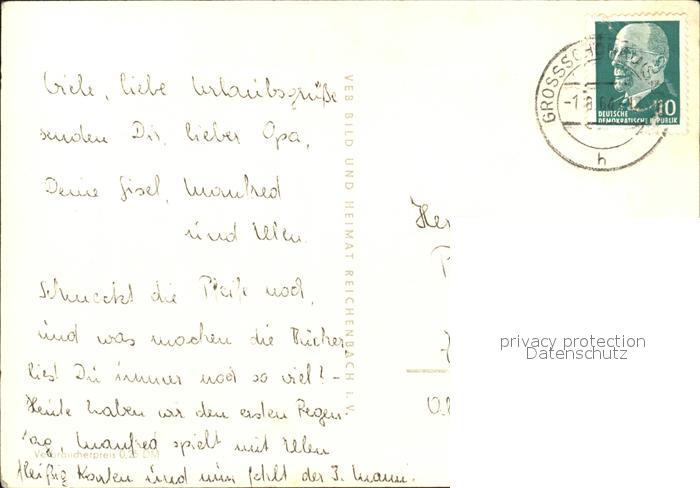 Viele, liebe Urlaubsgrüße
senden Dir, lieber Opa,
Deine Gisel, Manfred
und Ellen.
Schmeckt die Pfeife noch,
und was machen die Bücher,
liest Du immer noch so viel? -
Heute haben wir den ersten Regen-
tag, Manfred spielt mit Ellen
fleißig Karten und nun fehlt der 3. Mann.
Verbraucherpreis 0,25 DM
VEB BILD UND HEIMAT REICHENBACH i. V.
GROSSSCHÖNAU
-1.8.64
h
10
DEUTSCHE
DEMOKRATISCHE REPUBLIK
Her
privacy protection
Datenschutz